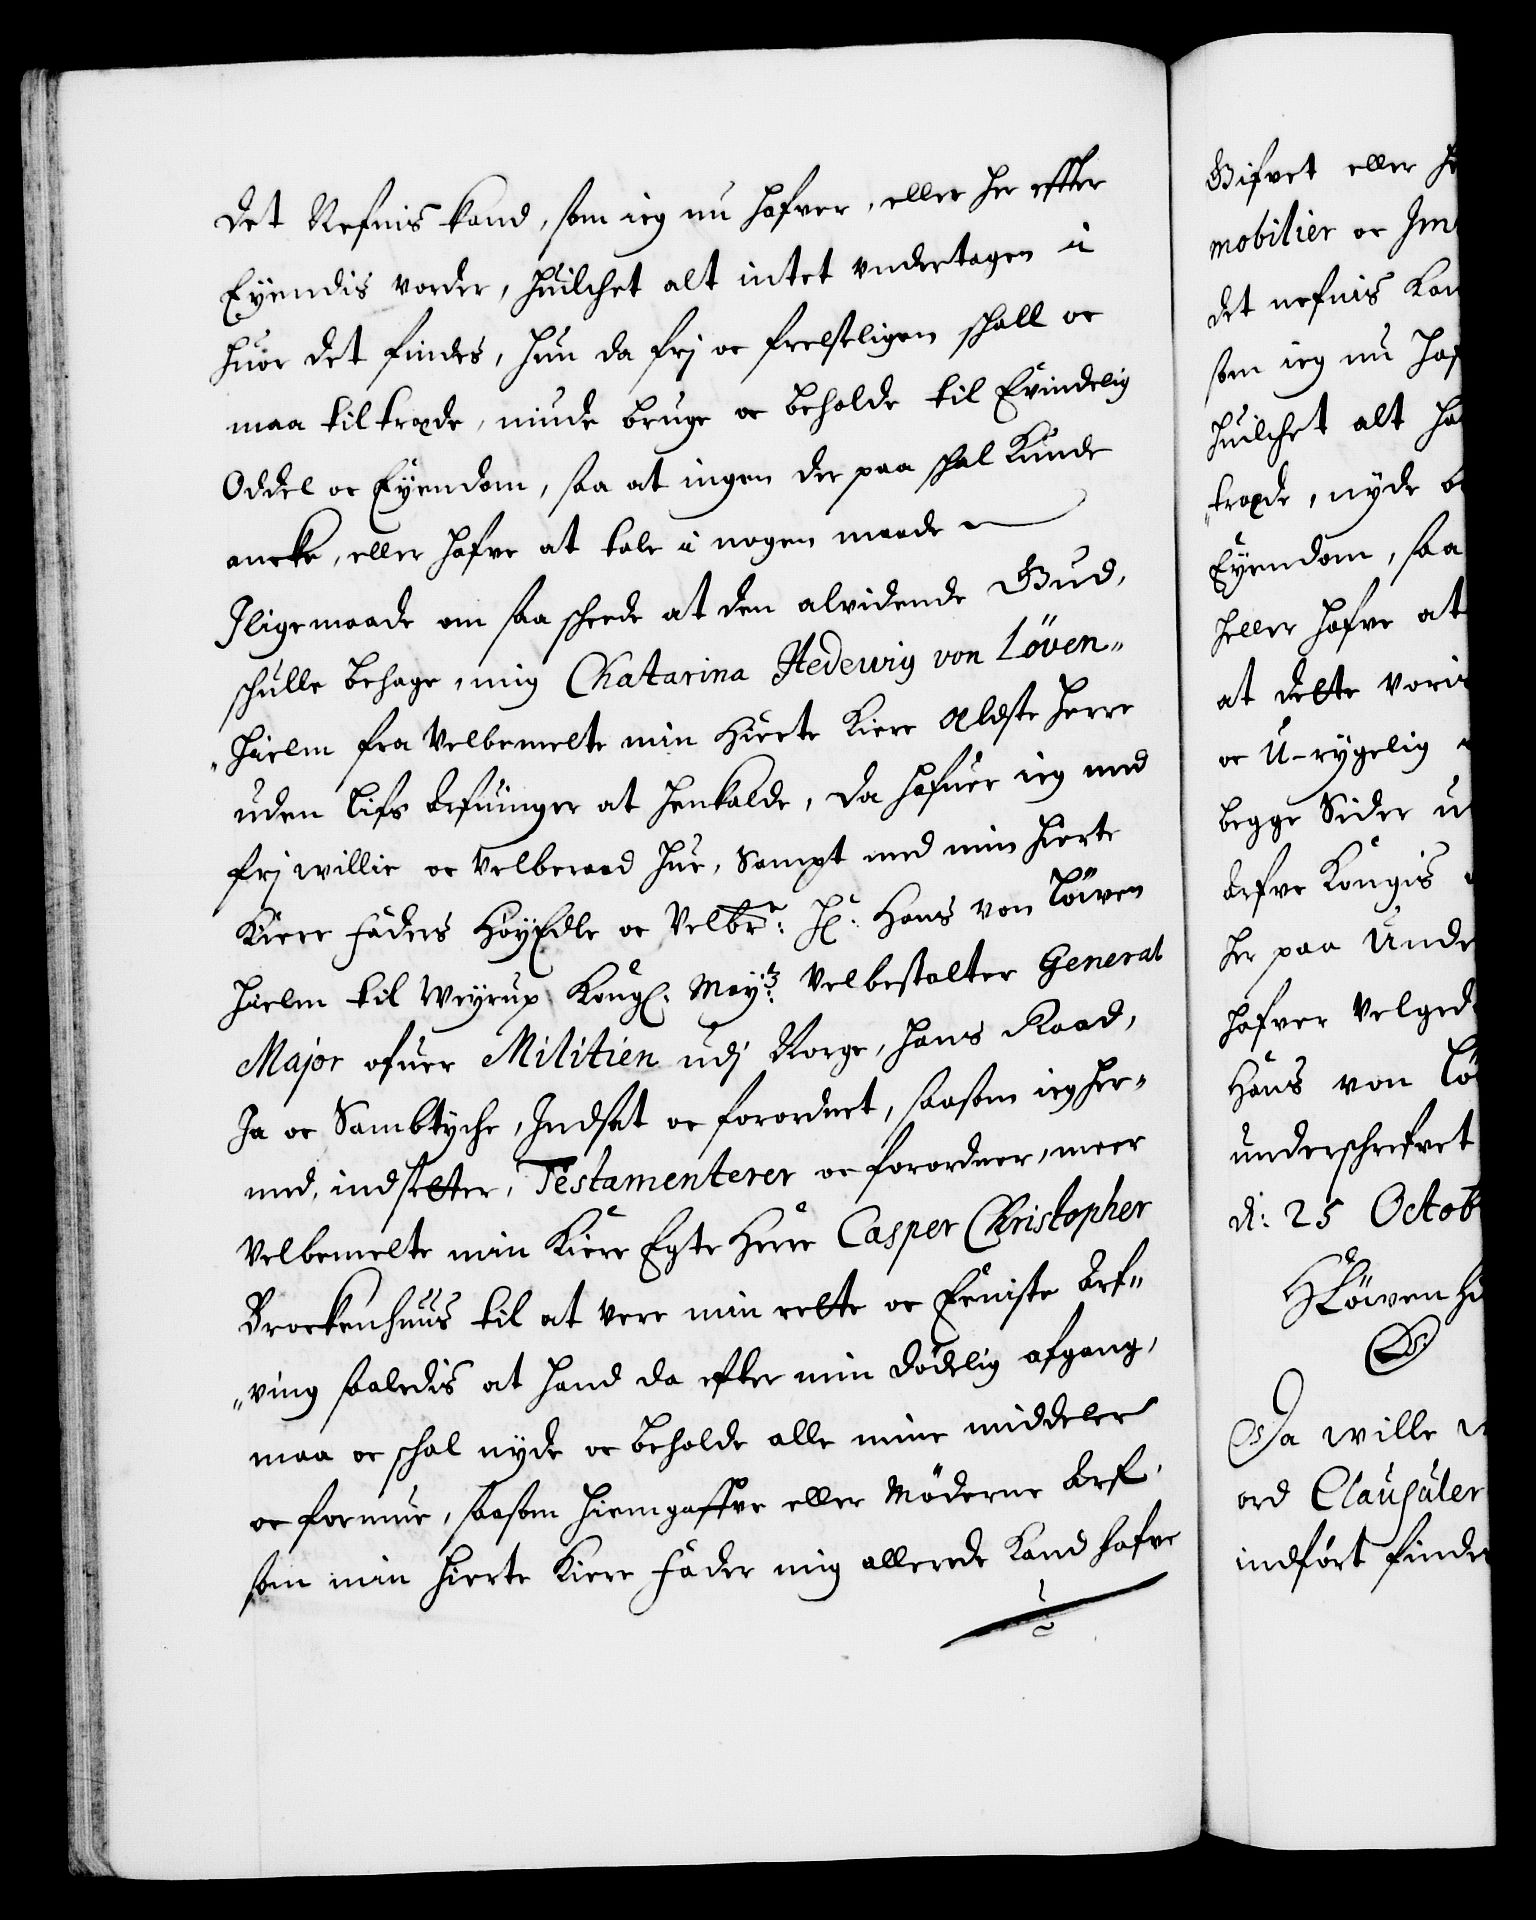 det Nefnis kand, som ieg nu hafver, eller her effter
Eÿendis vorder, huilchet alt intet undertagen i
huor det findes, hun da frj oc frelseligen schall oc
maa tiltræde, niude bruge oc beholde til Evindelig
Oddel oc Eÿendom, saa at ingen der paa schal Kunde
ancke, eller hafve at tale i nogen maade
Jligemaade om saa scheede at den alvidende Gud,
schulle behage, mig Chatarina Hedewig von Löven„
„hielm fra Velbemelte min Hierte Kiere Aldste Herre
uden Lifs Arfuinger at henkalde, da hafuer ieg med
frj willie oc Velberaad hue, Sampt med min hierte
Kiere Faders HöyEdle oc Velbr: Hr: Hans von Löwen
hielm til Weÿrup Kongl: Maÿ:tz Velbestalter General
Major ofuer Militien udj Norge, hans Raad,
Ja oc Sambtyche, Indsat oc forordnet, saasom ieg her„
med, indsetter, Testamenterer oc forordner, meer
Velbemelte min Kiere Egte Herre Casper Christopher
Brockenhuus til at vere min rette oc Eeniste Arf„
„ving saaledis at hand da efter min dödelig afgang,
maa oc schal nÿde oc beholde alle mine middeler
oc formue, saasom hiemgaffve eller Möderne Arf,
som min hierte Kiere Fader mig allerede Kand hafve
Gifvet eller
mobilier oc
det nefnis
som ieg nu
huilchet alt
træde, nÿde
Eÿendom, saa
heller hafve at
at dette
oc U-rygelig
begge Sider
Arfve Kongis
her paa
hafver
Hans von
underschrefvet
d: 25 Octob
HLöwen
Da wille
ord Clausuler
indfört